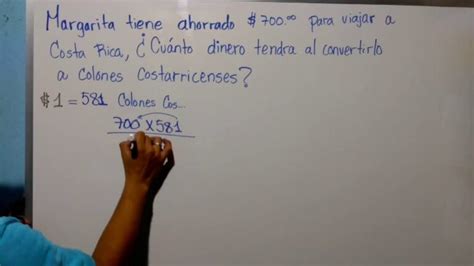 Margarita tiene ahorrado $700.⁰⁰ para viajar a
Costa Rica, ¿Cuánto dinero tendra al convertirlo
a Colones Costarricenses?
$1 = 581 Colones Cos...
700 x 581